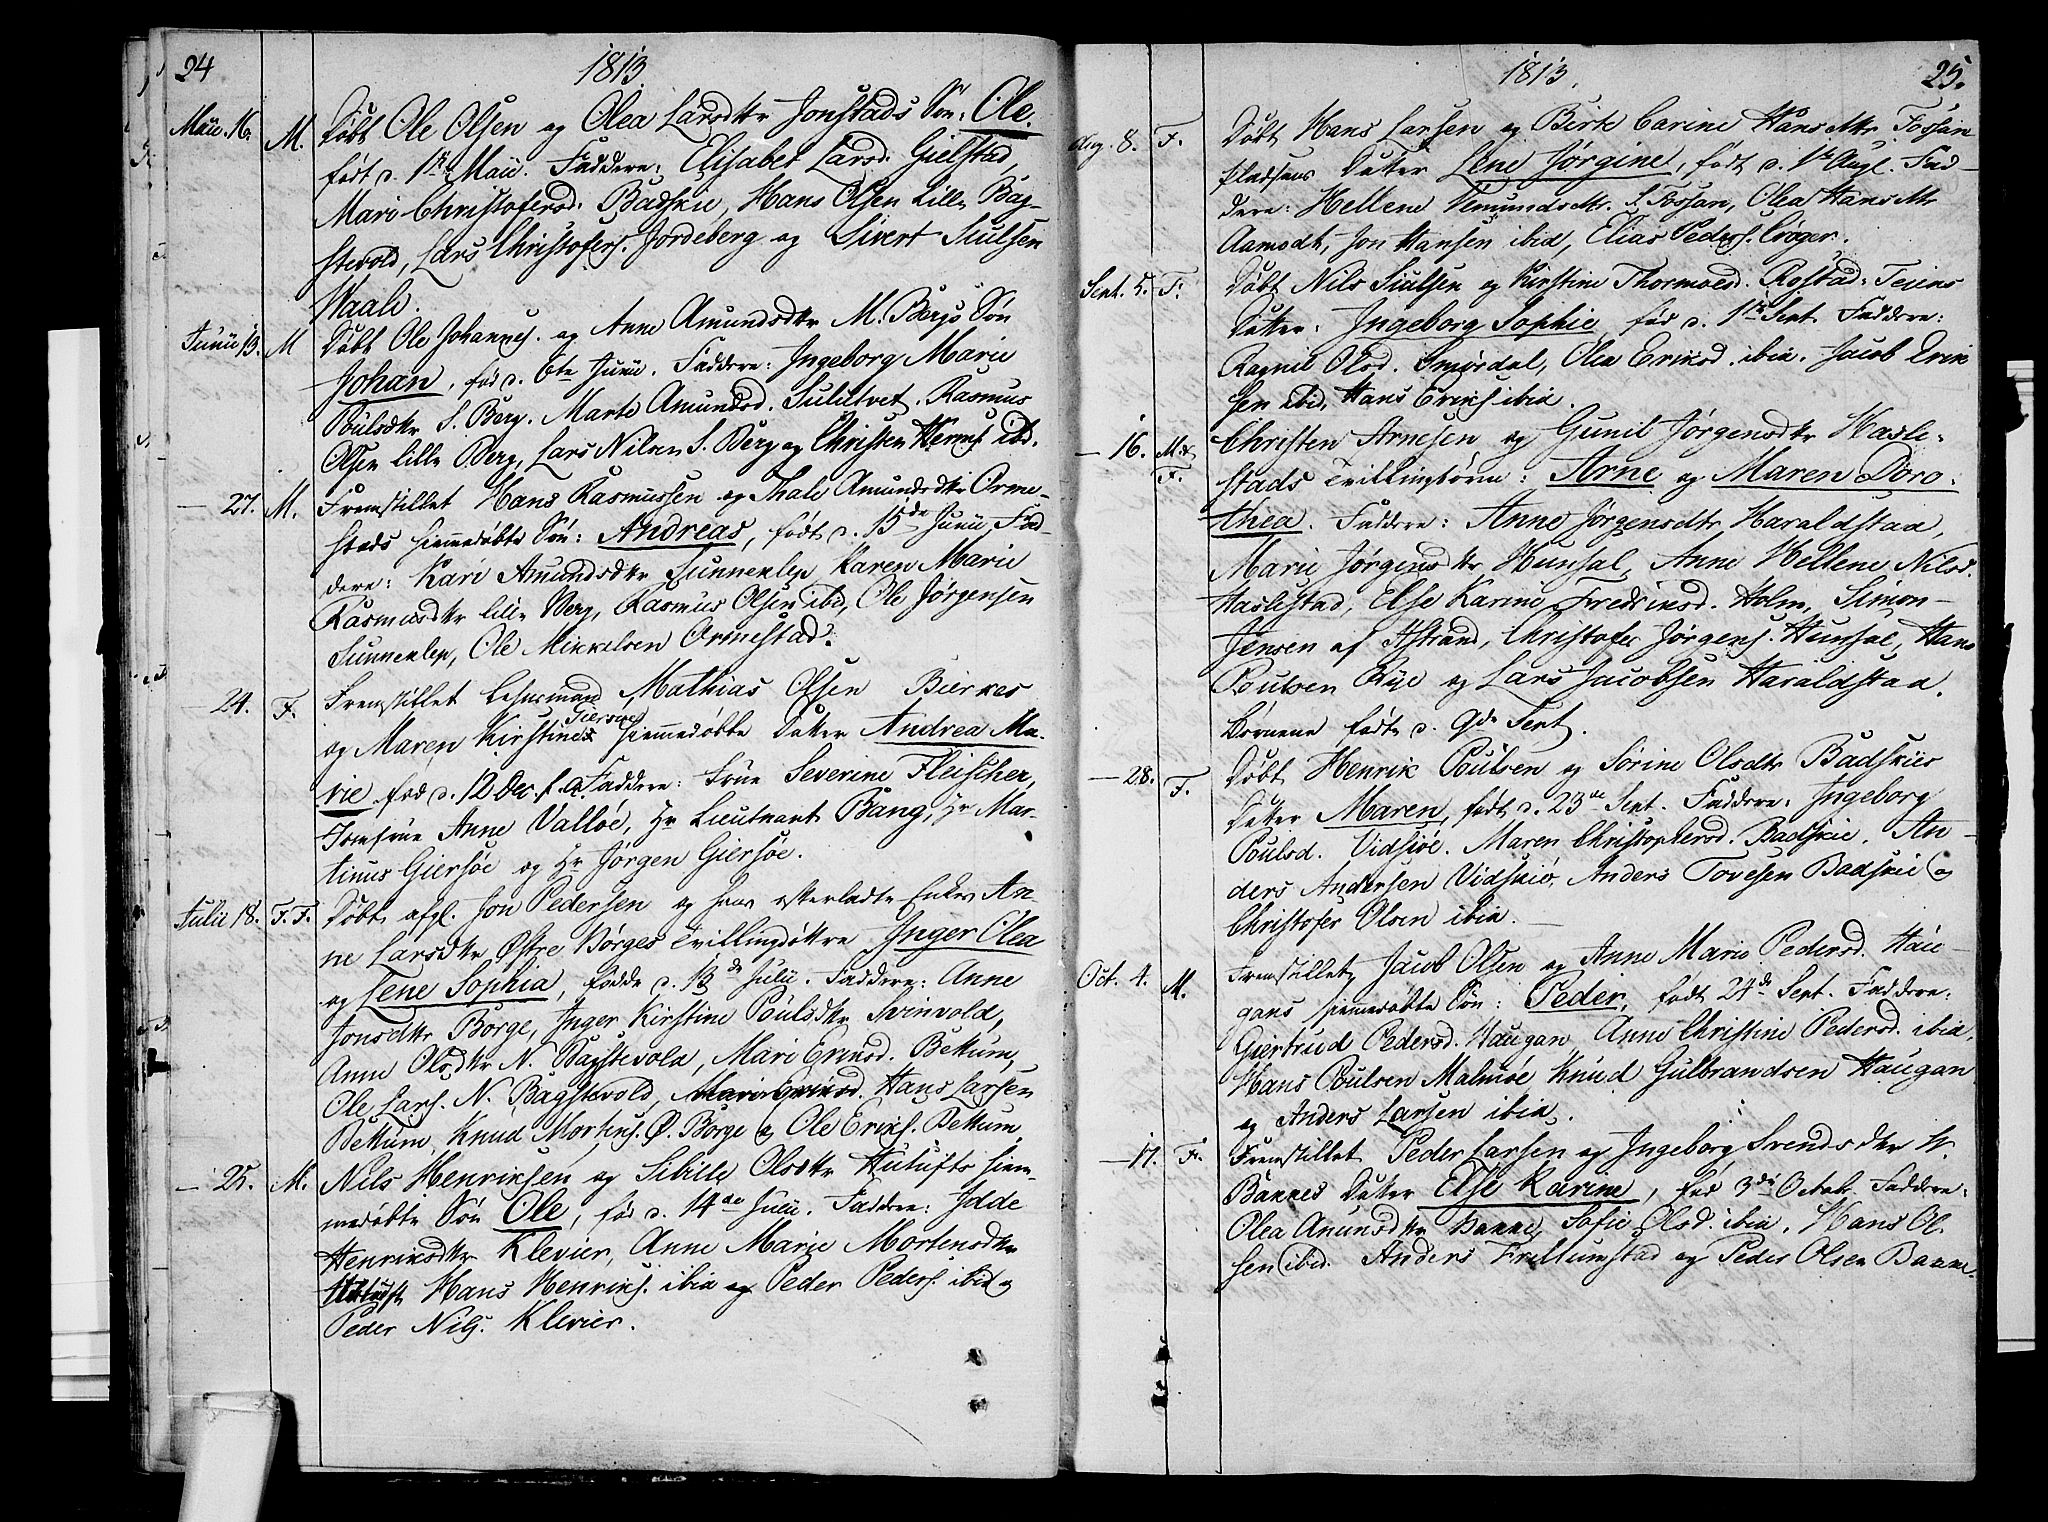 24
1813
Maii. 16. M. Døbt Ole Olsen og Olea Larsdttr Jonstads Søn: Ole.
født d. 1ste Maii. Faddere: Elisabet Larsd. Gielstad,
Mari Christofersd. Badskie, Hans Olsen Lille Bag-
stevold, Lars Christofers. Jordeberg og Sivert Siulsen
Waale.
Junii 13. M Døbt Ole Johannes. og Anne Amundsdttr M. Bergs Søn
Johan, fød d. 6te Junii. Faddere: Ingeborg Marie
Poulsdttr S. Berg. Marte Amundsd. Rasmus
Olsen Lille Berg, Lars Nilsen S. Berg og Christen ibd.
— 27. M. Fremstillet Hans Rasmussen og Thale Amundsdttr Orme-
stads hiemmedøbte Søn: Andreas, født d. 15de Junii Fad-
dere: Kari Amundsdttr Sunnenlep Karen Marie
Rasmusdttr Lille Berg, Rasmus Olsen ibid, Ole Jørgensen
Sunnenlep, Ole Mikkelsen Ormestad.
— 24. F. Fremstillet Lehnsmand Mathias Olsen Bierkes
og Maren Kirstine Giersøes hiemmedøbte Datter Andrea Ma-
rie fød d. 12 Dec. f. a. Faddere: Frue Severine Fleischer,
Jomfrue Anne Valløe, Hr Lieutnant Bang, Hr Mar-
tinus Giersøe og Hr Jørgen Giersøe.
Julii 18. F. F. Døbt afgl. Jon Pedersen og hans efterladte Enke An-
ne Larsdttr Østre Børges Tvillingdøttre Inger Olea
og Lene Sophia, fødde d. 13de Julii. Faddere: Anne
Jonsdttr Børge, Inger Kirstine Poulsdttr Svinvold,
Anne Olsdttr N. Bagstevold, Mari Eriksd. Bettum,
Ole Lars. N. Bagstevold, Hans Larsen
Bettum, Knud Mortens. Ø. Børge og Ole Eriks. Bettum
— 25. M. Nils Henriksen og Sibille Olsdttr Hulufts hiem-
medøbte Søn Ole, fød d. 14de Julii. Faddere: Idde
Henriksdttr Klevier, Anne Marie Mortensdttr
Hans Henriks. ibid og Peder Peders. ibid og
Peder Nils. Klevier.
1813.
25.
Aug. 8. F. Døbt Hans Larsen og Birte Carine Hansdttr Fossan
pladsens Datter Lene Jørgine, født d. 1te Aug. Fad-
dere: Hellene Temundsdttr. S. Fossan, Olea Hansdttr
Aamodt, Jon Hansen ibid, Elias Peders. Crøger.
Sept. 5. F. Døbt Nils Siulsen og Kirstine Thormoesd. Rostad: Teiens
Datter: Ingeborg Sophie, fød d. 1ste Sept. Faddere:
Ragnil Olsd. Smørdal, Olea Eriksd. ibid. Jacob Erik
sen ibid, Hans Eriks ibid.
— 16. M. & F. Christen Arnesen og Gunil Jørgensdttr Hasle-
stads Tvillingbørn: Arne og Maren Doro-
thea. Faddere: Anne Jørgensdtr Haraldstad,
Marie Jørgensdttr Hunsal, Anne Hellene Nilsd.
Haslestad, Else Karine Fredriksd. Holm, Simon
Jensen af Strand, Christofer Jørgens. Hunsal, Hans
Poulsen Rye og Lars Jacobsen Haraldstad.
Børnene fødte d. 9de Sept.
— 28. F. Døbt Henrik Poulsen og Sørine Olsdtr Badskies
Datter Maren, født d. 23de Sept. Faddere: Ingeborg
Poulsd. Vidsiøe. Maren Christophersd. Badskie. An-
ders Andersen Vidskiø, Anders Tovesen Badskie og
Christofer Olsen ibid.
Oct. 4. M. Fremstillet Jacob Olsen og Anne Marie Pedersd. Hau-
gans hiemmedøbte Søn: Peder, født 24de Sept. Faddere:
Giertrud Pedersd. Haugan Anne Christine Pedersd. ibid.
Hans Poulsen Malmøe, Knud Gulbrandsen Haugan
og Anders Larsen ibid.
— 17. F. Fremstillet Peder Larsen og Ingeborg Svendsdttr W.
Bannes Datter Else Karine, fød 3de Octobr Faddere:
Olea Anunsdttr Banne, Sofie Olsd. ibid. Hans Ol-
sen ibid. Anders Frellumstad og Peder Olsen Banne.